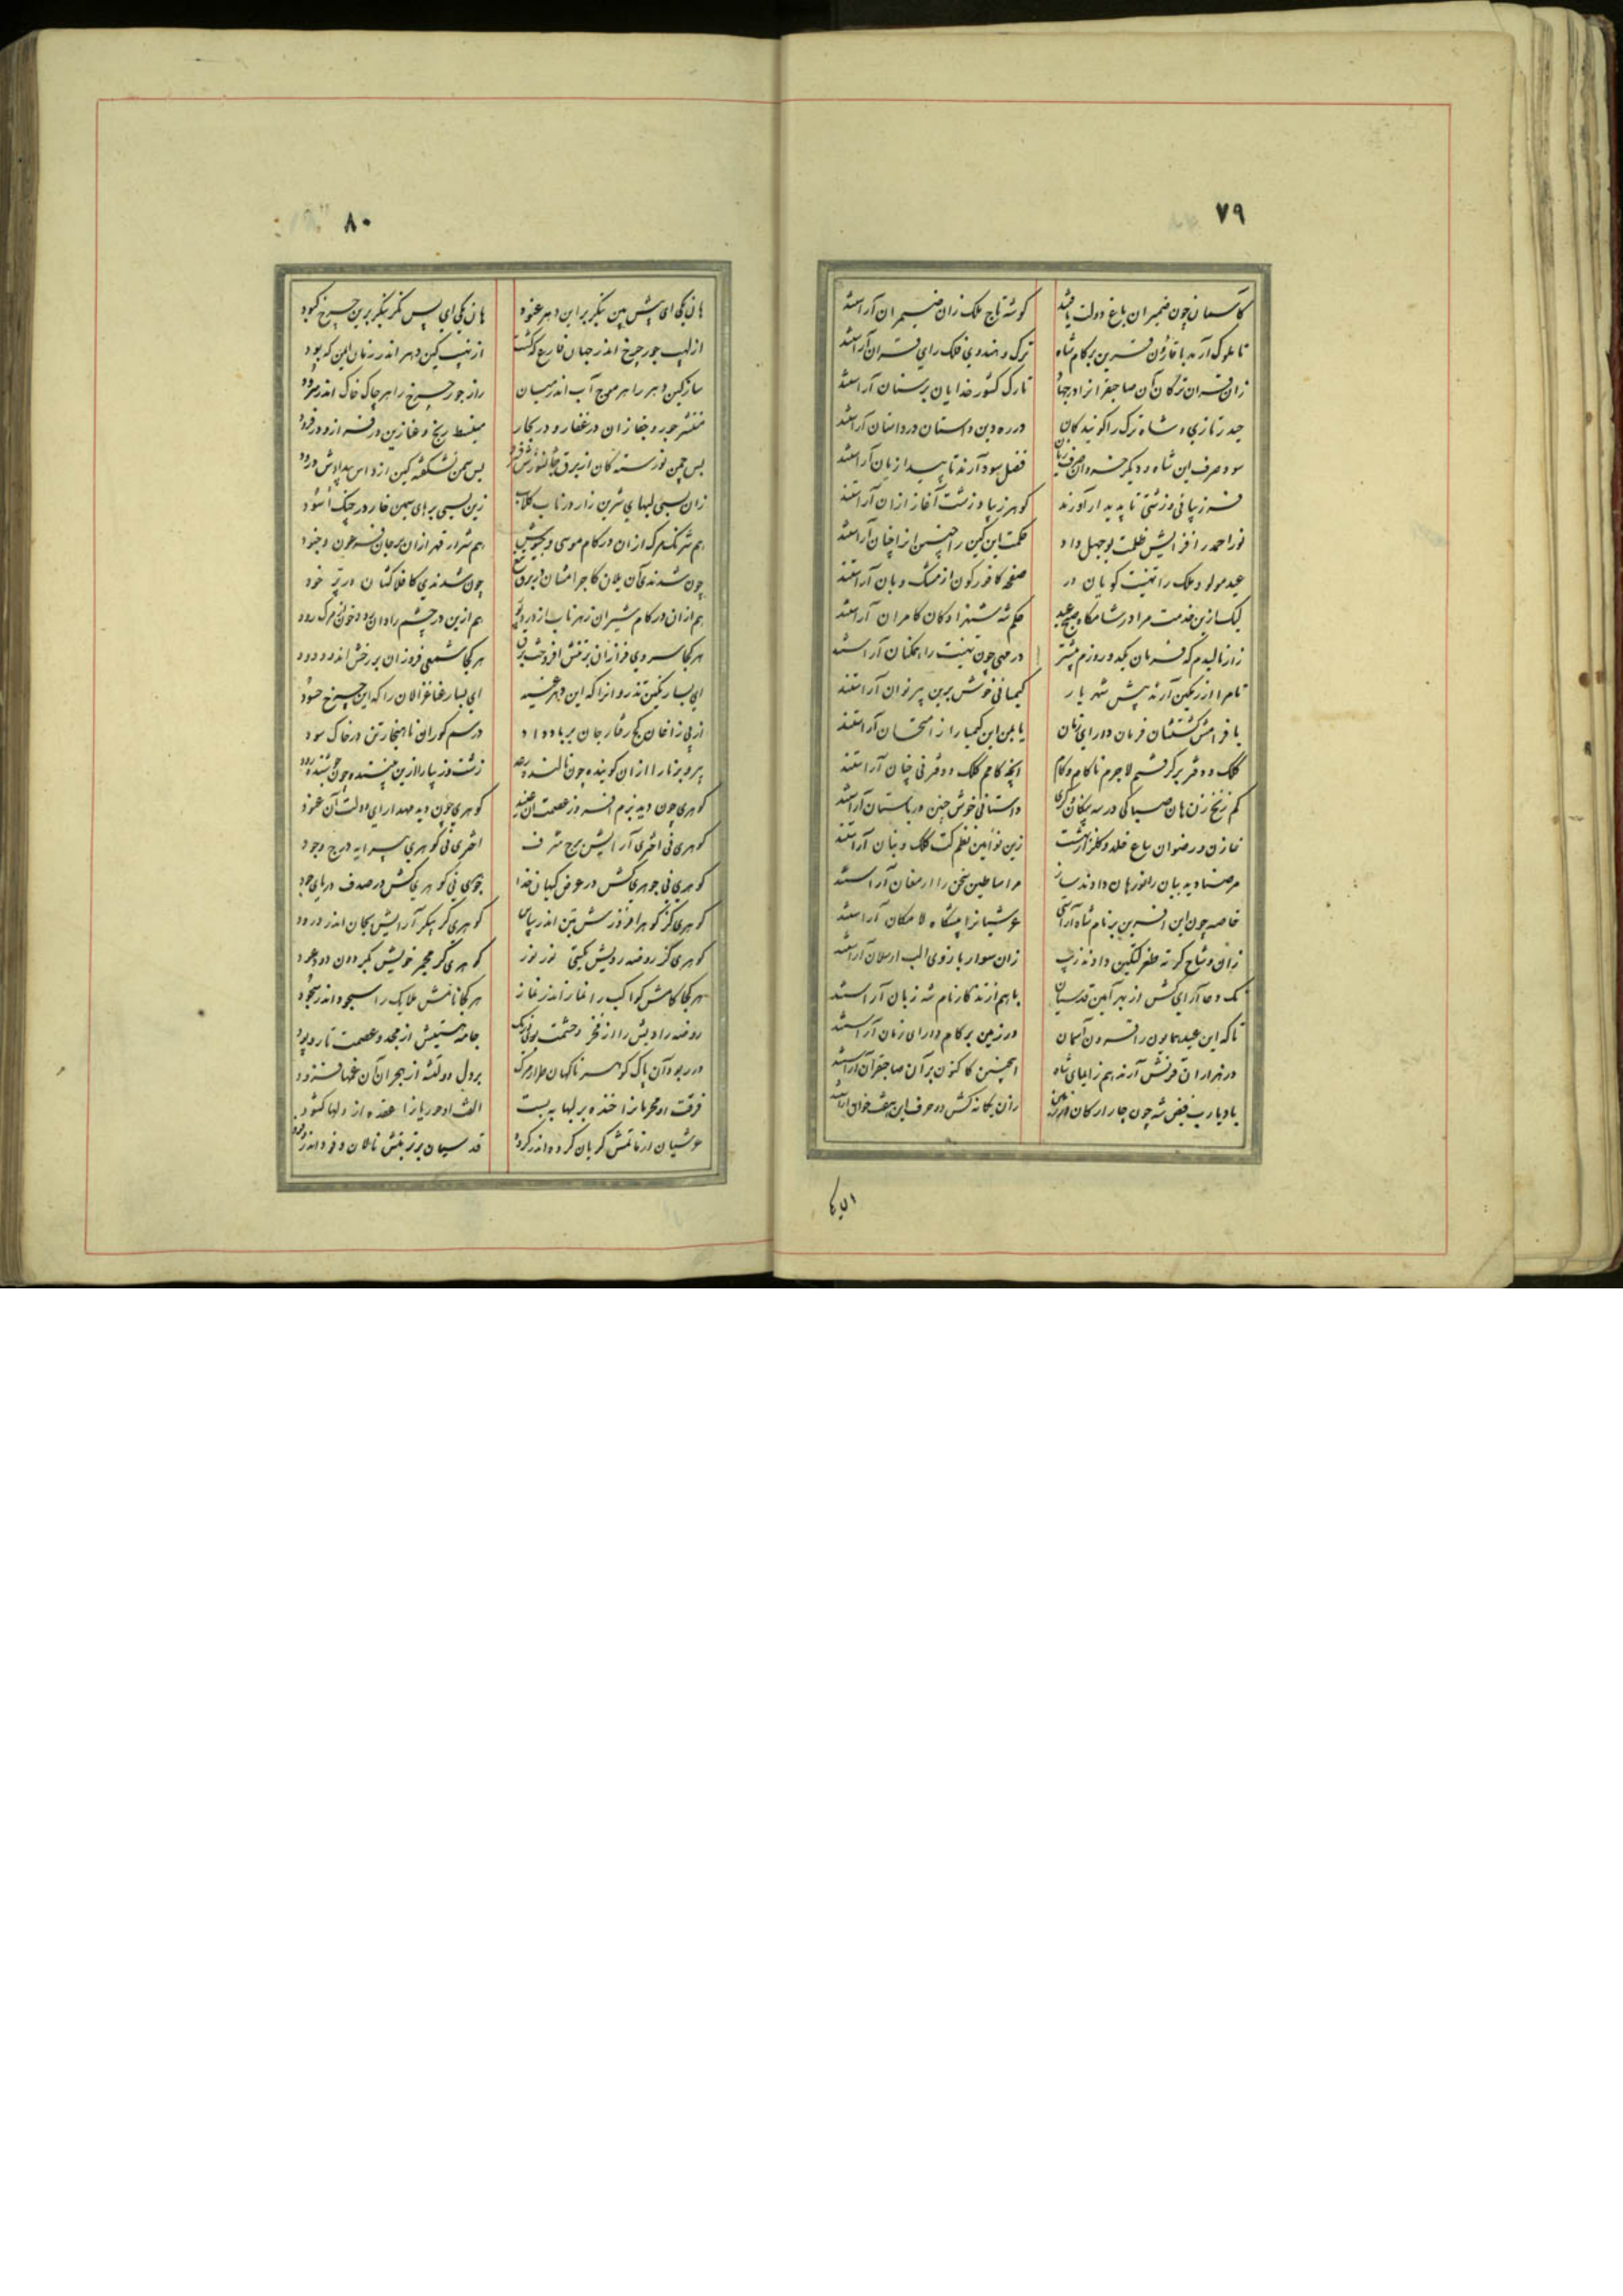 ۷۹
کاسمان چون ضمیران باغ دولت یافتند
گوشه تاج ملک زان ضیمران آراستند
تا ملوک آرند با قارون قرین بر کام شاه
ترک و هندوی فلک رای قران آراستند
زان قران ترکان آن صاحبقرانرا در جهان
تارک کشور خدایان پرستان آراستند
حیدر تازی و شاه ترک را گویندگان
در ره دین داستان در داستان آراستند
سود صرف این شاه و دیگر خسروان صرف زیان
فضل سود آرند تا پیدا زیان آراستند
فر زیبائی و زشتی تا پدیدار آورند
گوهر زیبا و زشت آغاز ازان آراستند
نور احمد را فزایش ظلمت بوجهل داد
حکمت این کین را چنین از اخیان آراستند
عید مولود ملک را تهنیت گویان در
صفحه کافورگون از مشک و بان آراستند
لیک ازین خدمت مرا در شامگاه صبح عید
حکم شه شهزادگان کامران آراستند
زار نالیدم که فرمان یکدو روزم پیشتر
در مهی چون تهنیت را همگنان آراستند
نام را از رنگین آرند پیش شهریار
کیمیائی خوش برین پیر نوان آراستند
یا فرامش گشتشان فرمان دارای زمان
یا بمن این کیمیا را ز امتحان آراستند
کلک و دفتر برگرفتم لاجرم ناکام و کام
اینچه کامم کلک و دفتر نی چنان آراستند
کم زنخ زن هان صباکی در سه پیکان گری
داستانی خوش چنین در باستان آراستند
خازن و رضوان باغ خلد و گلزار بهشت
زین نوآیین نظم کت کلک و بنان آراستند
مر صنادید بیان را لغزهان دادند ساز
مر اساطین سخن را ارمغان آراستند
خاصه چون این آفرین بر نام شاه آراستی
عرشیانرا پیشگاه لامکان آراستند
زان وشاح گوته طغرلتکین دادند زیب
زان سوار بازوی الب ارسلان آراستند
نک دعا آرای کش از بهر آمین قدسیان
با هم از زندگار نام شه زبان آراستند
تا که این عید همایون را قرون آسمان
در زمین بر کام دارای زمان آراستند
در هزاران قرنش آرند هم ز ایمای شاه
اینچنین کاکنون بر آن صاحبقران آراستند
باد یارب فیض شه چون چار ارکان در زمین
زان یگانه کش دو حرف این هفت خوان آراستند
ایکها
۸۰
هان یکی ای پیش بین بنگر بر این دهر عنود
هان یکی ای پس نگر بنگر برین چرخ کبود
از لهیب جور چرخ اندر جهان فارغ که گشت
از نهیب کین دهر اندر زمان ایمن که بود
ساز کین دهر را هر موج آب اندر میان
راز جور چرخ را هر چاک خاک اندر سرود
منتشر جور و جفا زان در قفار و در بحار
منبسط رنج و عنا زین در فراز و در فرود
بس چمن نورسته کان از برق
بس سمن نشکفته کین از داس بیدادش درود
زان بسی لبهای شیرین زار در ناب کلاب
زین بسی برهای سیمین خار در چنگ اسود
هم شرنگ مرگ ازان در کام موسی و
هم شرار قهر ازان بر جان فرعون و جنود
چون شدندی آن یلان کاجرامشان در زیر تیغ
چون شدندی کافلاکشان در زیر خود
هم ازان در کام شیران زهر ناب از
هم ازین در چشم رادان دود خون از مرگ رود
هر کجا سروی فرازان بر تنش افروخت برق
هر کجا شمعی فروزان بر رخش اندود دود
ای بسا رنگین تذروانرا که این دهر
ای بسا رعنا غزالان را که این چرخ حسود
از پی زاغان کج رفتار جان بر باد داد
در سم گوران ناهنجار تن در خاک سود
پیر و برنا را ازان گوینده چون نالنده رعد
زشت و زیبا را ازین چون
گوهری چون دیه بزم افروز عصمت آن
گوهری چون دیه مهد آرای دولت آن عنود
گوهری نی اختری آرایش برج شرف
اختری نی گوهری پیرایه درج وجود
گوهری نی جوهری کش در عوض کیهان خدا
جوهری نی گوهری کش در صدف دریای جود
گوهری کز گوهر افروزش بتن اندر سپاس
گوهری کز پیکر آرایش بجان اندر درود
گوهری کز روضه رویش گیتی نور نور
گوهری کز مجمر خویش بگردون دود عود
هر کجا کامش کواکب را نماز اندر نماز
هر کجا نامش ملایک را سجود اندر سجود
روضه رادیش را از فخر و حشمت بوی و رنگ
جامه هستیش از مجد و عصمت تار و پود
در ربود آن پاک گوهر ناگهان طرار مرگ
بر دل دولتشه از هجران آن غمها فزود
فرقت او محرمان را خنده بر لبها ببست
الفت او حوریان را عقده از دلها گشود
عرشیان از ماتمش گریان گروه اندر گروه
قدسیان بر تربتش نالان وفود اندر وفود